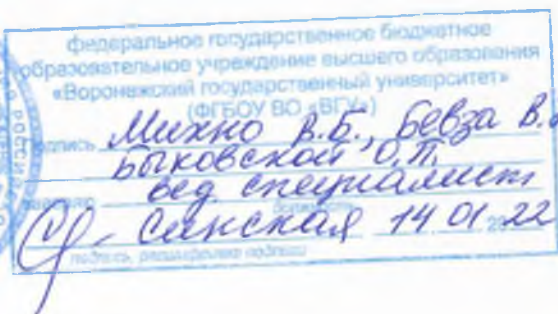 федеральное государственное бюджетное
образовательное учреждение высшего образования
«Воронежский государственный университет»
(ФГБОУ ВО «ВГУ»)
подпись Михно В.Б., Бевза В.
Быковской О.П.
вед. специалист
должность
Сянская 14 01 2022
подпись, расшифровка подписи